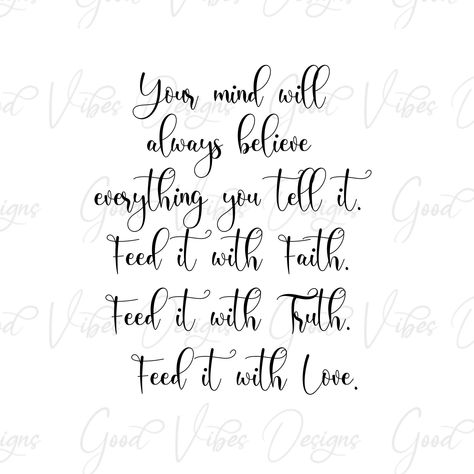 Your mind will
always believe
everything you tell it.
Feed it with Faith.
Feed it with Truth.
Feed it with Love.
Good Vibes Designs
Good Vibes Designs
Good Vibes Designs
Good Vibes Designs
Good Vibes Designs